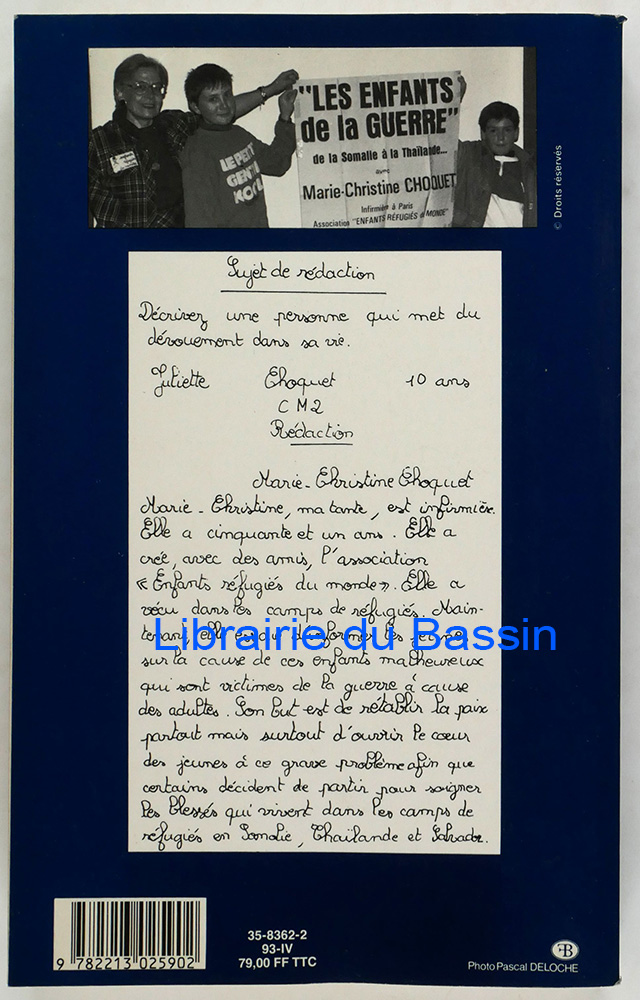 "LES ENFANTS
de la GUERRE"
de la Somalie à la Thaïlande...
avec
Marie-Christine CHOQUET
Infirmière à Paris
Association "ENFANTS RÉFUGIÉS du MONDE"
LE PETIT
© Droits réservés
Sujet de rédaction
Décrivez une personne qui met du
dévouement dans sa vie.
Juliette Choquet 10 ans
CM2
Rédaction
Marie-Christine Choquet
Marie-Christine, ma tante, est infirmière.
Elle a cinquante et un ans. Elle a
crée, avec des amis, l'association
« Enfants réfugiés du monde ». Elle a
vécu dans les camps de réfugiés. Main-
tenant, elle
Librairie du Bassin
sur la cause de ces enfants malheureux
qui sont victimes de la guerre à cause
des adultes. Son but est de rétablir la paix
partout mais surtout d'ouvrir le cœur
des jeunes à ce grave problème afin que
certains décident de partir pour soigner
les blessés qui vivent dans les camps de
réfugiés en Somalie, Thaïlande et Salvador.
9 782213 025902
35-8362-2
93-IV
79,00 FF TTC
Photo Pascal DELOCHE